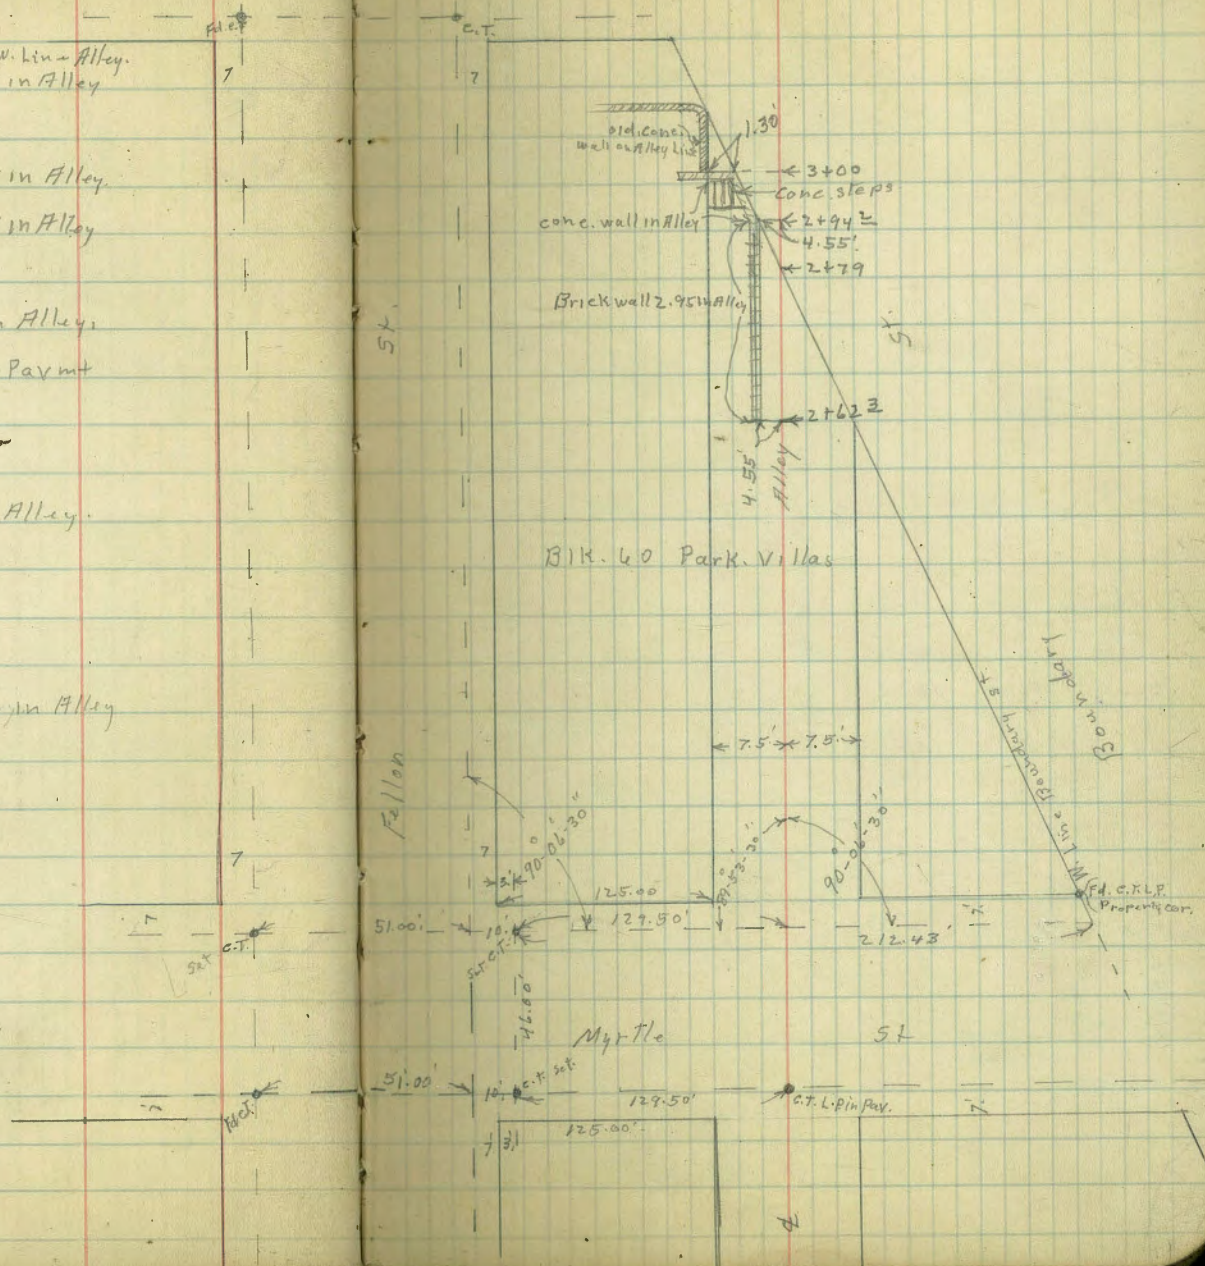 W. Line Alley.
in Alley
in Alley.
in Alley
Alley.
Pavmt
Alley.
in Alley
7
7
7
Set C.T.
Fd. C.T.
7
Fd. C.T.
C.T.
7
old. conc.
wall on Alley Line
1.30'
3+00
Conc. steps
conc. wall in Alley
2+94 2
4.55'
2+79
Brick wall 2.95 in Alley
St.
St.
2+62 3
4.55'
Alley
Blk. 60 Park. Villas
Boundary
W. Line Boundary St.
7.5' 7.5'
Fellon
90-06-30"
89-53-30"
90°-06'-30"
7
3'
125.00
Fd. C.T.L.P.
Property cor.
51.00'
10'
129.50'
7
212.43'
Set C.T.
46.00'
Myrtle St
51.00'
10'
C.T. Set.
129.50'
C.T. L.P. in Pav.
7
125.00'
7 3'